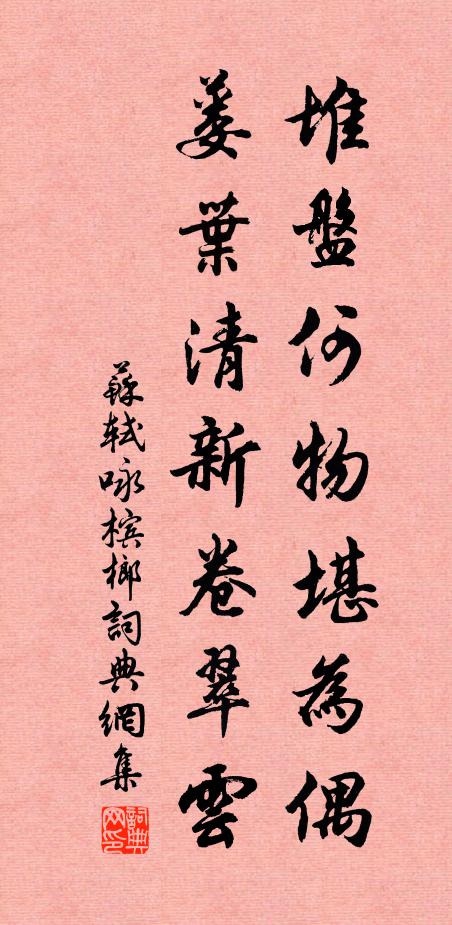 堆盤何物堪為偶
蒌葉清新卷翠雲
蘇軾咏檳榔詞典網集
詞典
网印